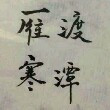 雁渡
寒潭